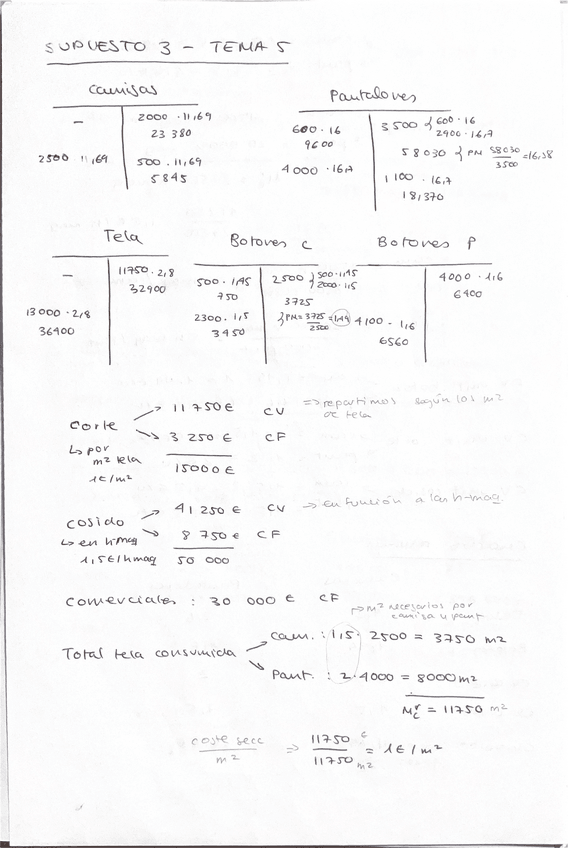 SUPUESTO 3 - TEMA 5
Camisas
-
2000 · 11,69
23 380
2500 11,69
500 · 11,69
5845
Pantalones
600 · 16
9600
3500 { 600 · 16
2900 · 16,7
58030 { PN 58030/3500 = 16,58
4000 · 16,7
1100 · 16,7
18,370
Tela
-
11750 · 2,8
32900
13000 · 2,8
36400
Botones C
500 · 1,45
750
2500 } 500 · 1,45
2000 · 1,5
3725
2300 · 1,5
3450
} PN = 3725/2500 = 1,49
Botones P
4000 · 1,6
6400
4100 · 1,6
6560
Corte
↳ por
m² tela
1€/m²
→ 11 750 € CV ⇒ repartimos según los m²
de tela
→ 3 250 € CF
15000 €
Cosido
↳ en h·maq
1,5€/h maq
→ 41 250 € CV → en función a las h-maq
→ 8 750 € CF
50 000
Comerciales : 30 000 € CF
→ m² necesarios por
camisa y pant
Total tela consumida
→ Cam. : 1,5 · 2500 = 3750 m²
→ Pant. : 2 · 4000 = 8000 m²
= 11750 m²
coste secc / m² ⇒ 11750 € / 11750 m² = 1€/m²